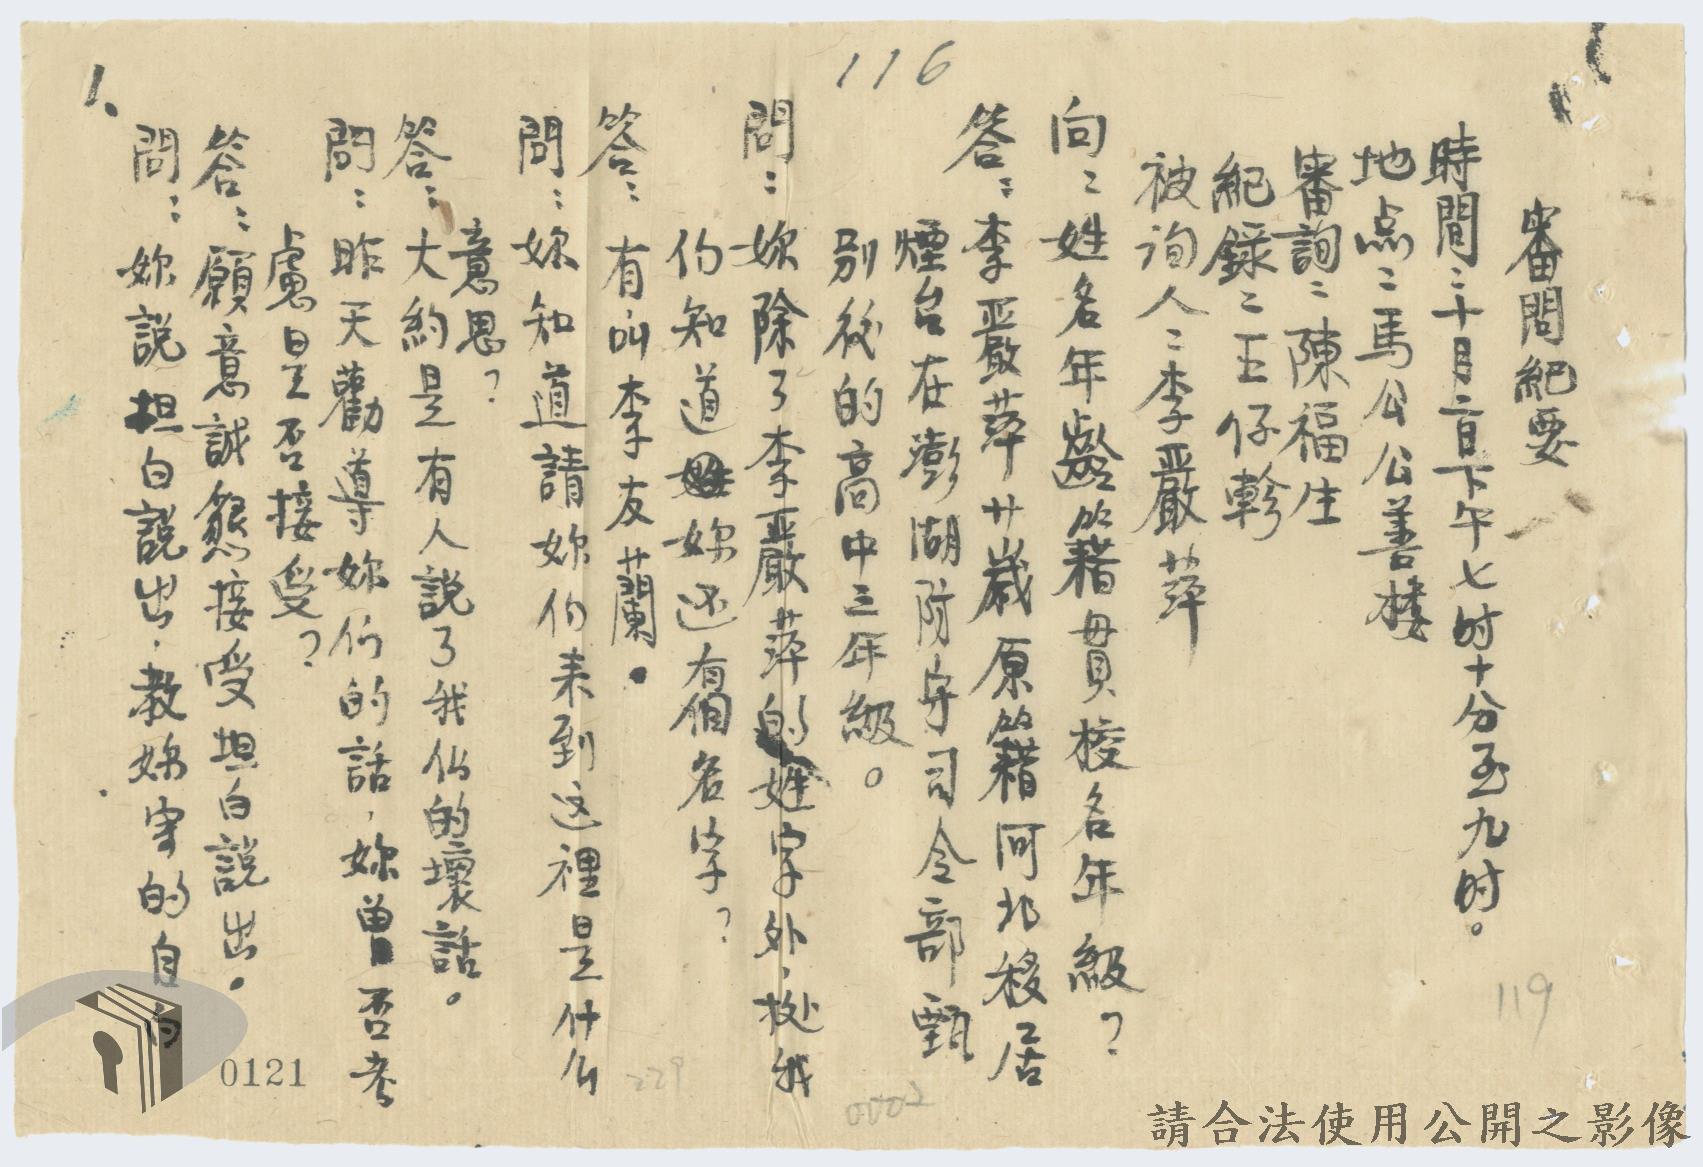 116
審問紀要
時間：十月二日下午七时十分至九时。
地点：馬公公善楼
審詢：陳福生
紀錄：王仔軫
被询人：李嚴萍
向：姓名年齡籍貫校名年級？
答：李嚴萍廿歲原籍河北移居
煙台在澎湖防守司令部甄
别後的高中三年級。
問：妳除了李嚴萍的姓字外，据我
们知道妳还有個名字？
答：有叫李友蘭。
問：妳知道請妳们来到这裡是什么
意思？
答：大約是有人説了我们的壞話。
問：昨天勸導妳们的話，妳曽否考
慮是否接受？
答：願意誠懇接受坦白説出。
問：妳説坦白説出，教妳寫的自白
1、
119
229
0002
0121
請合法使用公開之影像